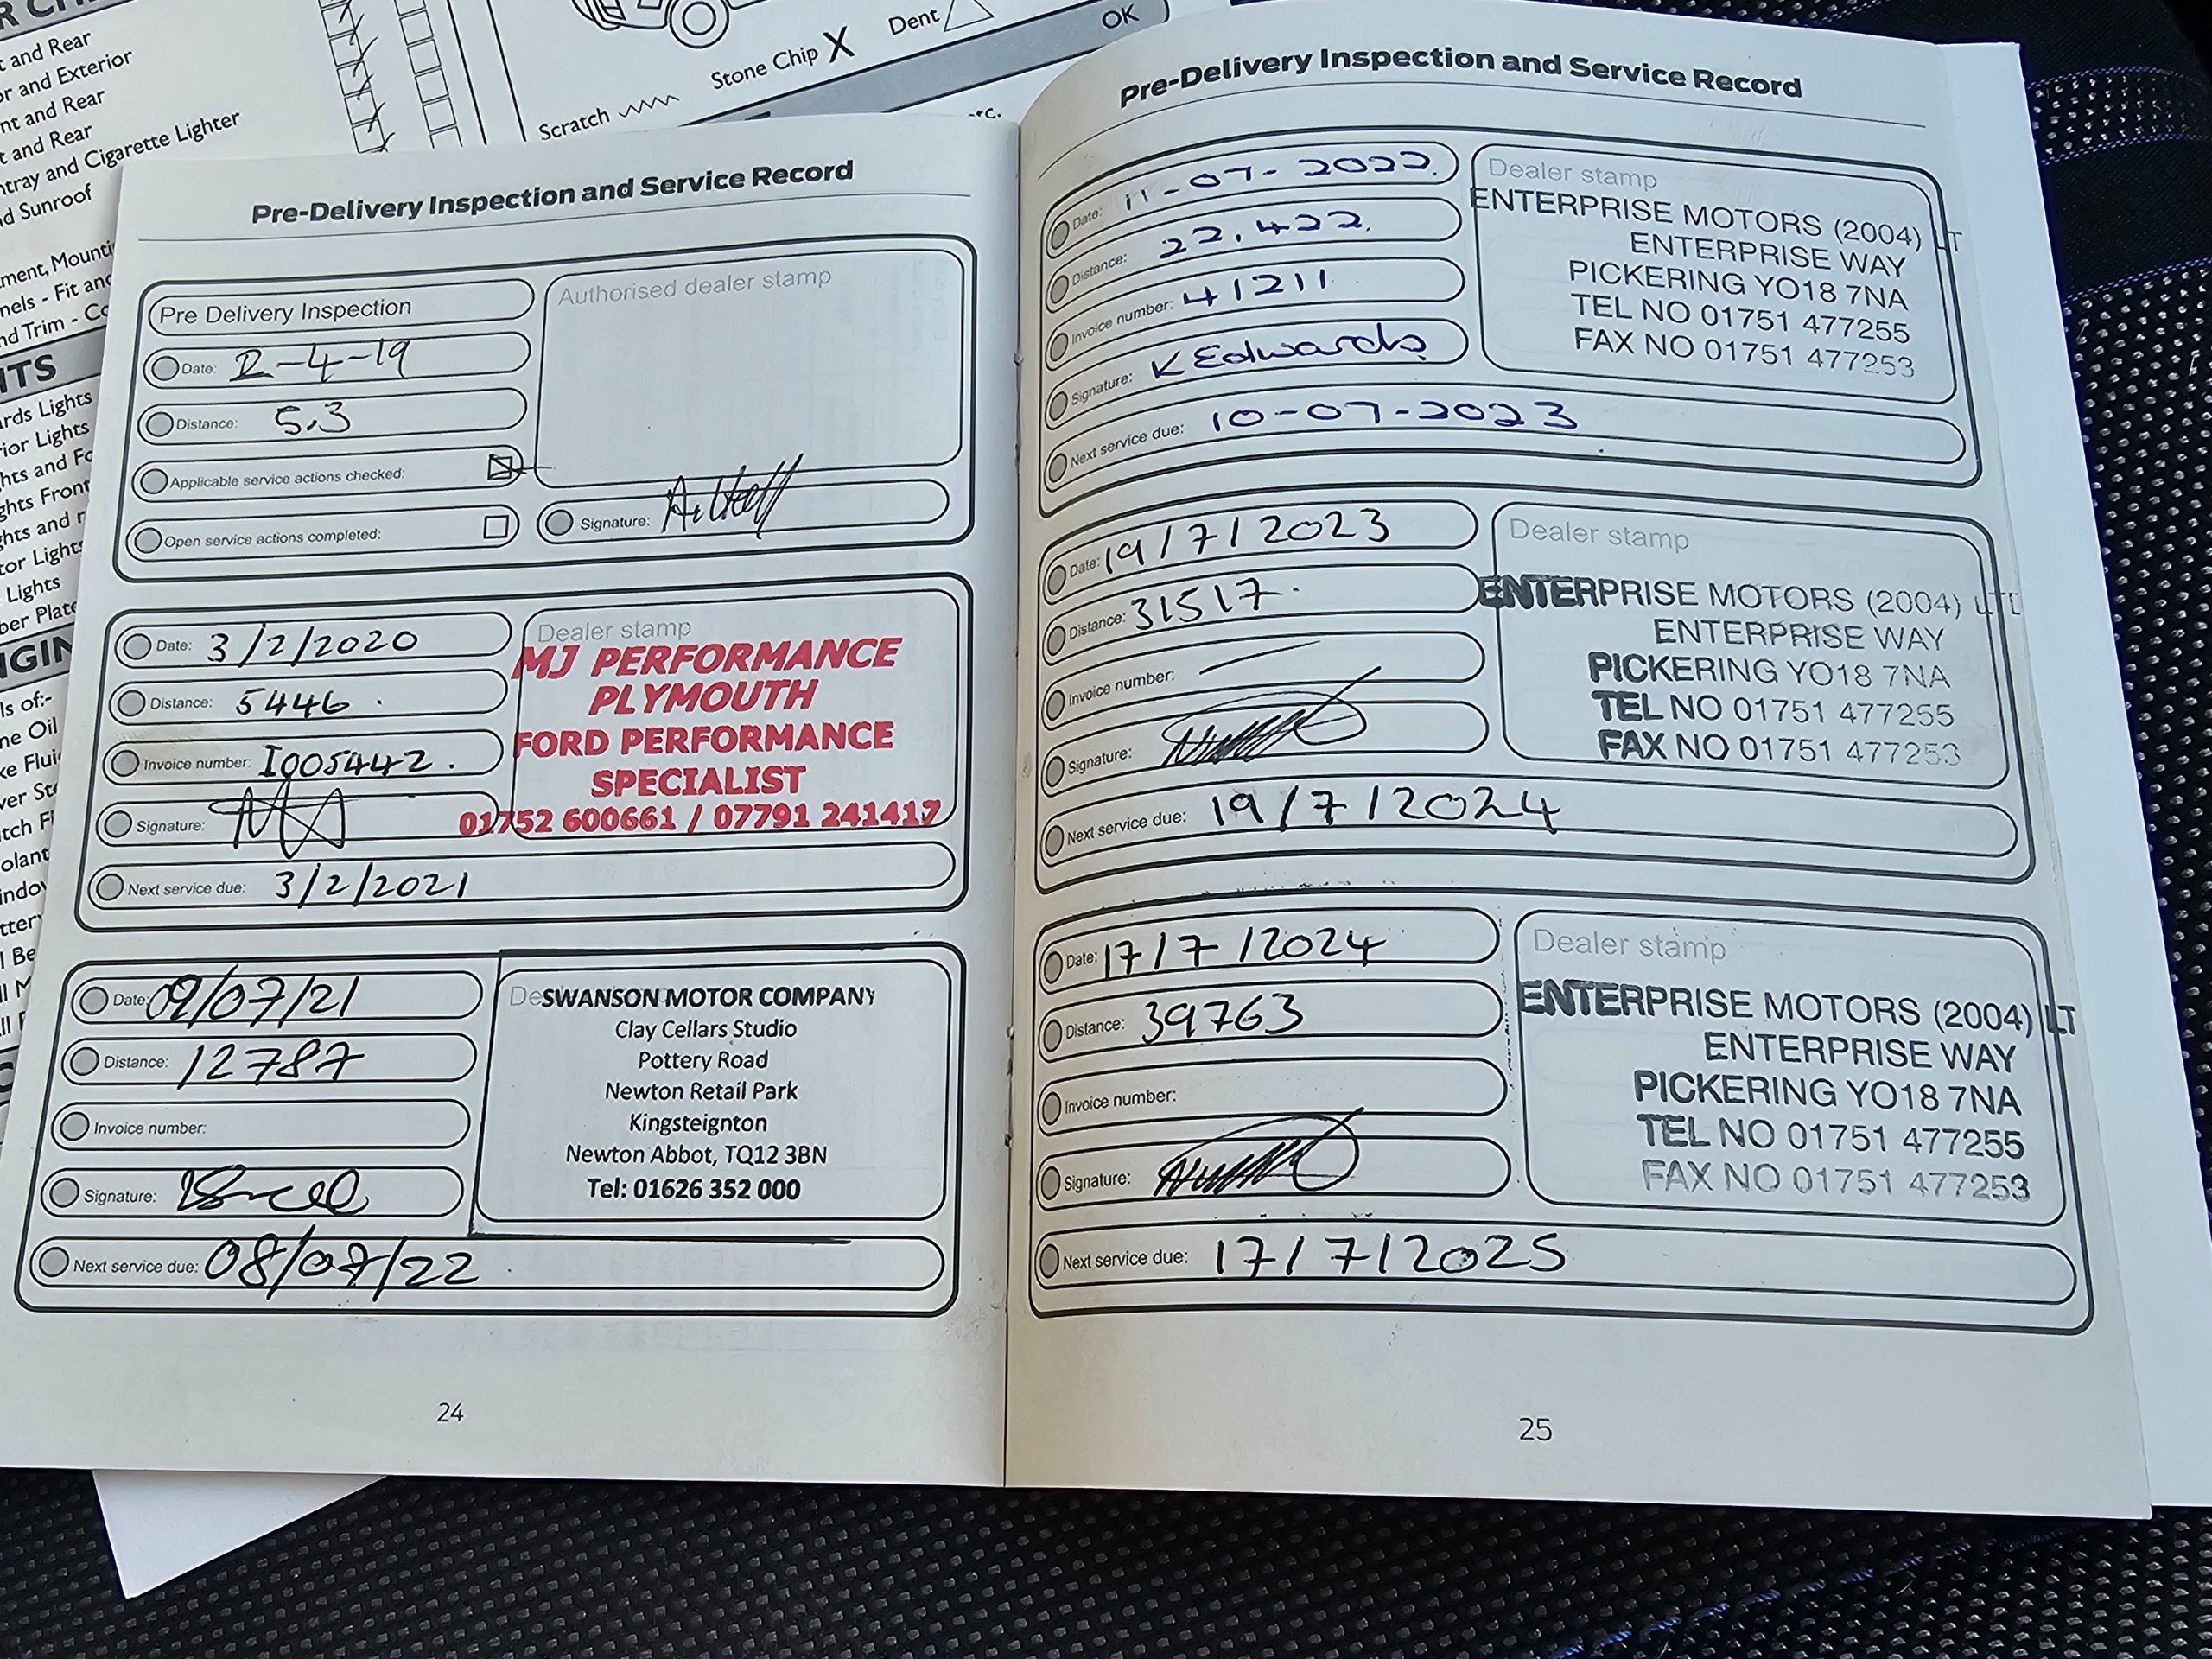 t and Rear
or and Exterior
nt and Rear
t and Rear
ntray and Cigarette Lighter
d Sunroof
ment, Mounti
nels - Fit and
nd Trim - Co
ITS
ards Lights
rior Lights
hts and Fo
ghts Front
ghts and r
tor Lights
Lights
ber Plate
NGIN
ls of:-
ne Oil
ke Flui
ver Ste
tch Fl
olant
indow
ttery
l Be
ll M
Stone Chip X
Dent
OK
Scratch
Pre-Delivery Inspection and Service Record
Pre Delivery Inspection
Date: 2-4-19
Distance: 5.3
Applicable service actions checked:
Open service actions completed:
Authorised dealer stamp
Signature:
Date: 3/2/2020
Distance: 5446.
Invoice number: I005442.
Signature:
Next service due: 3/2/2021
Dealer stamp
MJ PERFORMANCE
PLYMOUTH
FORD PERFORMANCE
SPECIALIST
01752 600661 / 07791 241417
Date: 09/07/21
Distance: 12787
Invoice number:
Signature:
Next service due: 08/07/22
SWANSON MOTOR COMPANY
Clay Cellars Studio
Pottery Road
Newton Retail Park
Kingsteignton
Newton Abbot, TQ12 3BN
Tel: 01626 352 000
24
Pre-Delivery Inspection and Service Record
Date: 11-07-2022.
Distance: 22,422.
Invoice number: 41211
Signature: K Edwards
Next service due: 10-07-2023
Dealer stamp
ENTERPRISE MOTORS (2004) LT
ENTERPRISE WAY
PICKERING YO18 7NA
TEL NO 01751 477255
FAX NO 01751 477253
Date: 19/7/2023
Distance: 31517.
Invoice number: —
Signature:
Next service due: 19/7/2024
Dealer stamp
ENTERPRISE MOTORS (2004) LTD
ENTERPRISE WAY
PICKERING YO18 7NA
TEL NO 01751 477255
FAX NO 01751 477253
Date: 17/7/2024
Distance: 39763
Invoice number:
Signature:
Next service due: 17/7/2025
Dealer stamp
ENTERPRISE MOTORS (2004) LT
ENTERPRISE WAY
PICKERING YO18 7NA
TEL NO 01751 477255
FAX NO 01751 477253
25